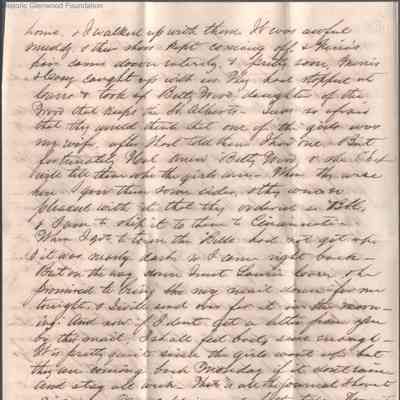 Historic Glenwood Foundation
home. & I walked up with them. It was awful
muddy & their shoes kept coming off &
hair came down entirely, & pretty soon
& caught up with us. They had stopped at
& took up Betty Wood daughter of the
Wood that keeps in St. Albert's. I was so afraid
that they would think that one of the girls was
my wife, after Noel told them I had one. But
fortunately Noel knew Betty Wood, & she
will tell them who the girls are. When they were
here I gave them some cider, & they were so
pleased with it that they ordered a Bbl,
& I am to ship it to them to Cincinnati.
When I got to town the had not got up.
& it was nearly dark so I came right back—
But on the way down met over, & he
promised to bring the mag mail down for me
tonight, & I will send over for it in the morn-
ing. And now if I dont get a letter from you
by this mail I shall feel badly sure enough—
It is pretty quiet since the girls went up but
they are coming back Monday if it dont rain
and stay all week. That is all the journal I have